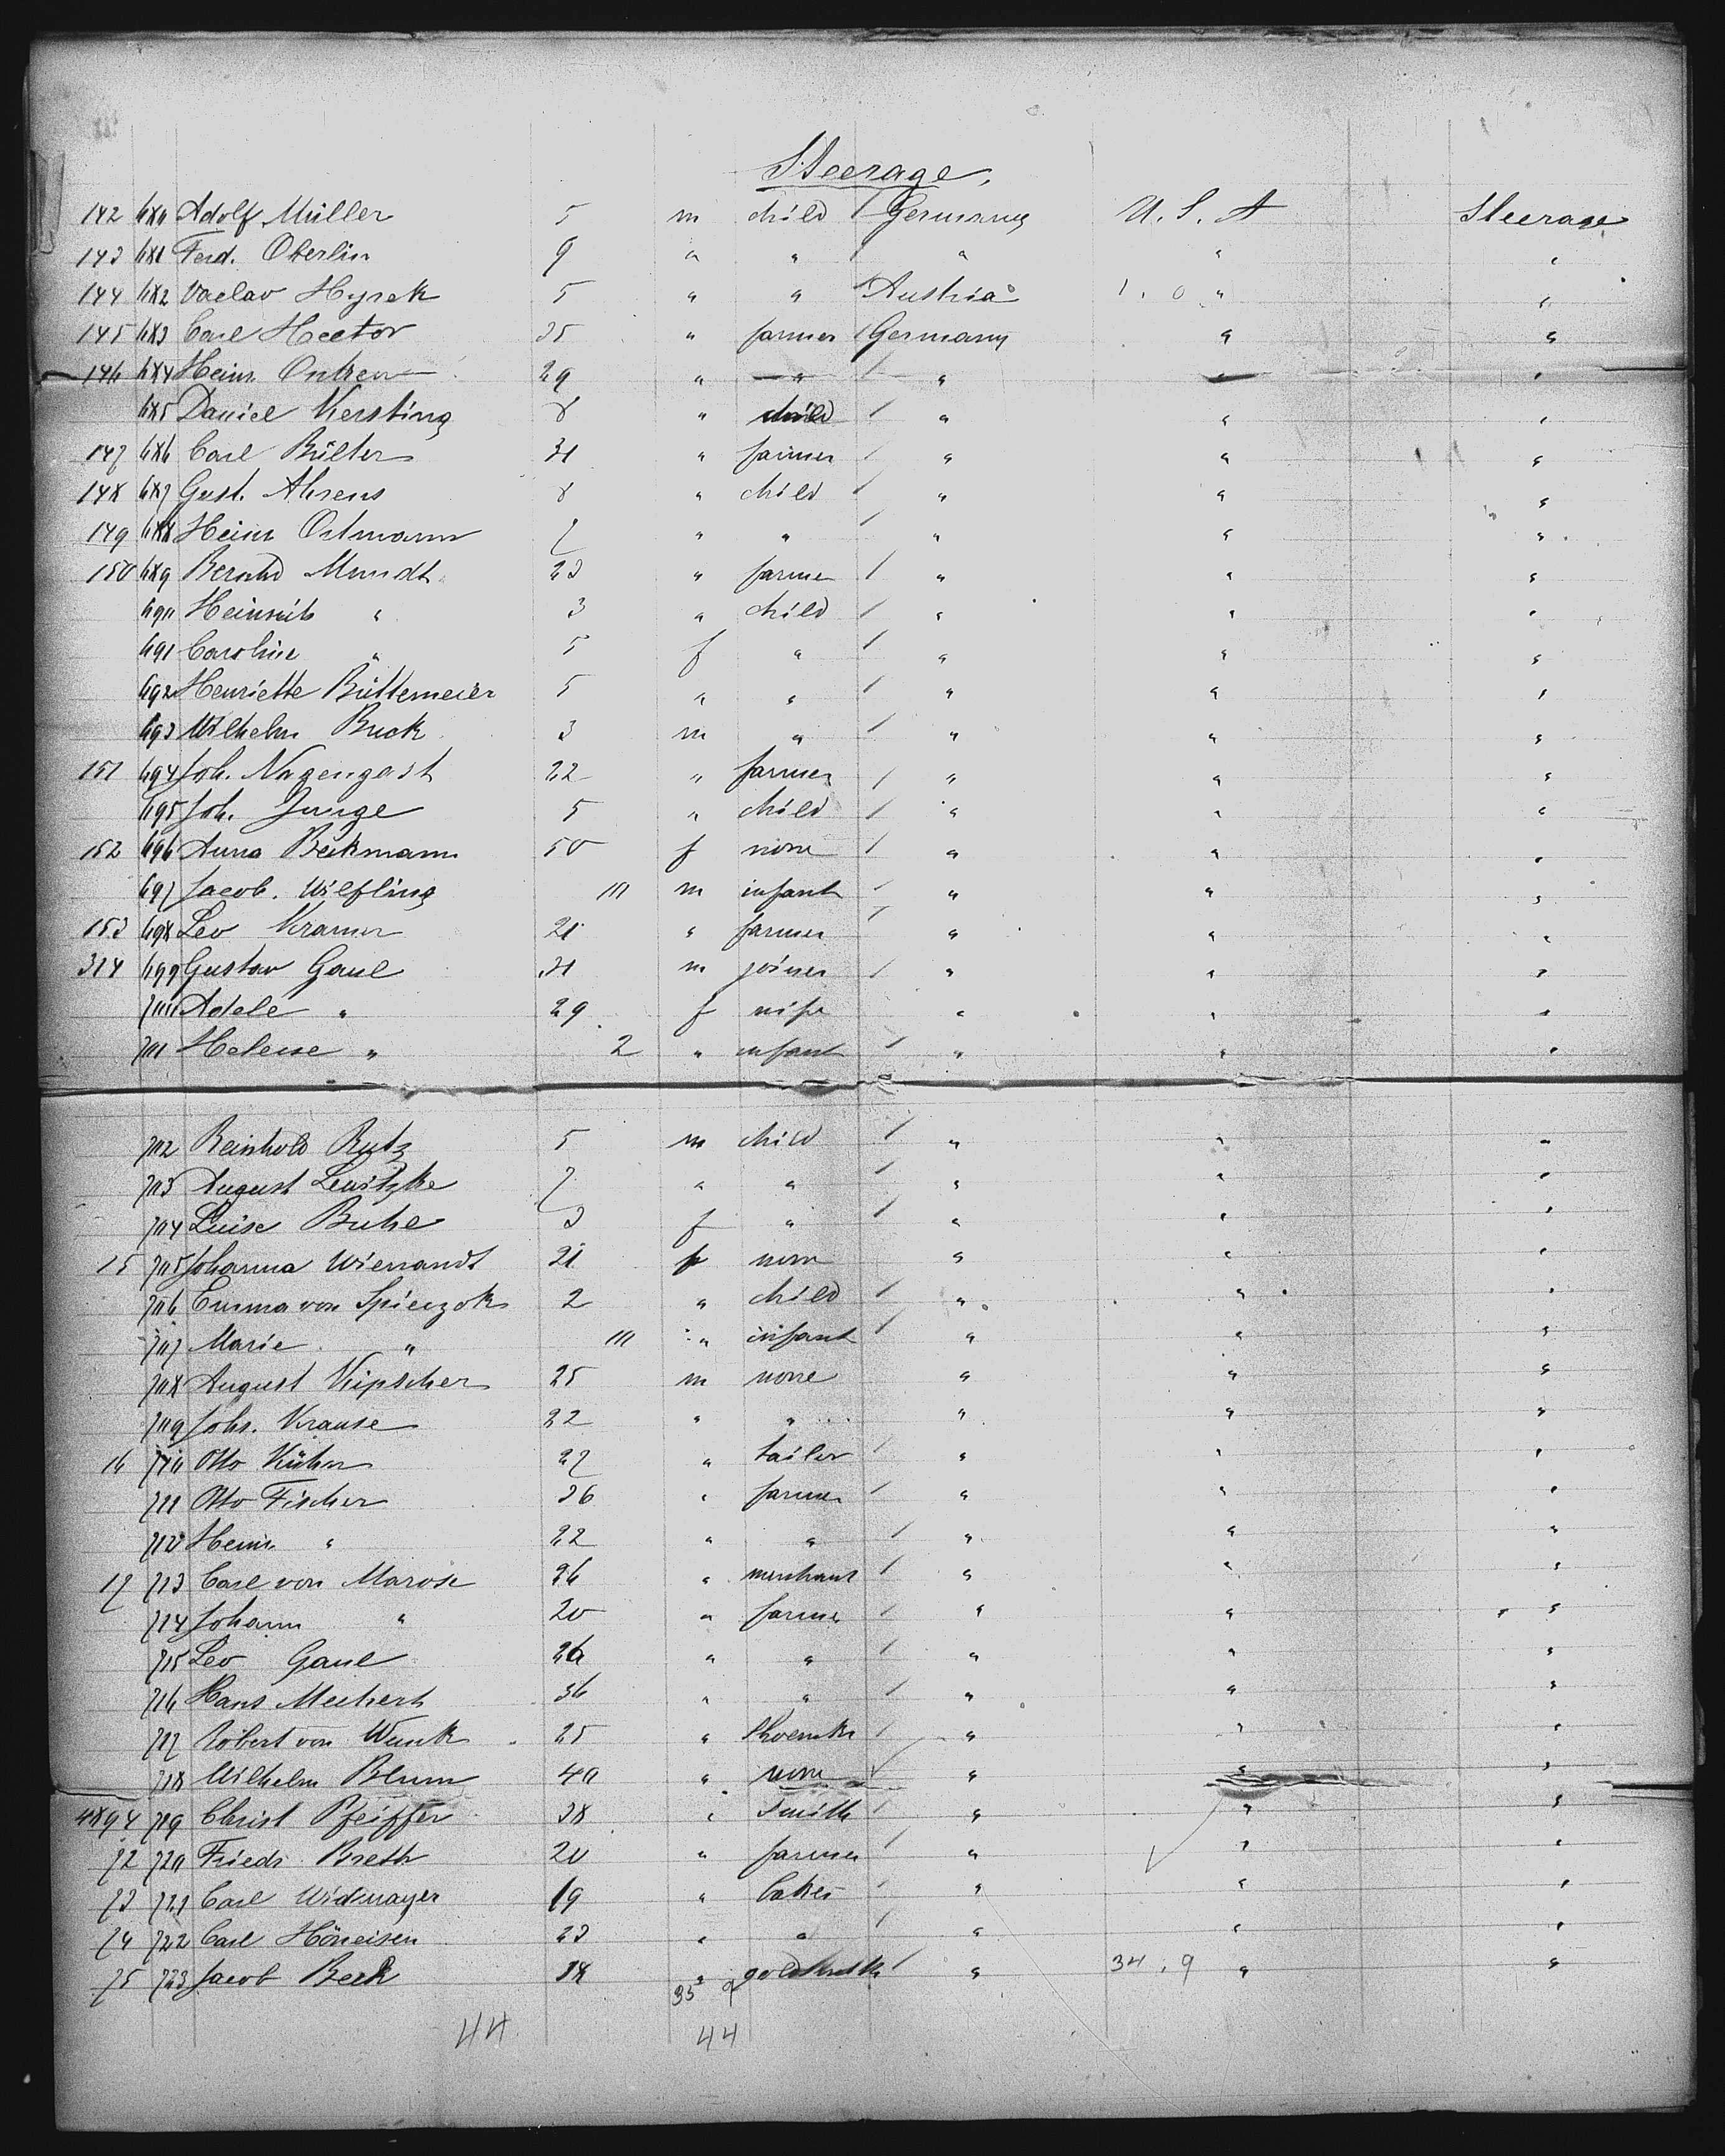 Steerage.
142 680 Adolf Müller 5 m child / Germany U. S. A Steerage
143 681 Ferd. Oberlin 9 " " / " " "
144 682 Vaclav Hyrek 5 " " Austria 1. 0 " "
145 683 Carl Hector 35 " farmer / Germany " "
146 684 Heinr. Onken 29 " " / " " "
685 Daniel Kersting 8 " child / " " "
147 686 Carl Bülter 31 " farmer / " " "
148 687 Gust. Ahrens 8 " child / " " "
149 688 Heinr Ortmann 7 " " / " " "
150 689 Bernhd Mundt 23 " farmer / " " "
690 Heinrich " 3 " child / " " "
691 Caroline " 5 f " / " " "
692 Henriette Büttemeier 5 " " / " " "
693 Wilhelm Buck 3 m " / " " "
151 694 Joh. Nagengast 22 " farmer / " " "
695 Joh. Junge 5 " child / " " "
152 696 Anna Beckmann 50 f none / " " "
697 Jacob. Wilfling 10 m infant / " " "
153 698 Leo Kramer 21 " farmer / " " "
314 699 Gustav Gaul 31 m joiner / " " "
700 Adele " 29 f wife " " "
701 Helene " 2 " infant / " " "
702 Reinhold Rutz 5 m child / " " "
703 August Lewitzke 7 " " / " " "
704 Luise Buhe 3 f " / " " "
15 705 Johanna Wienandt 21 f none " " "
706 Emma von Spiczok 2 " child / " " "
707 Marie " 10 " infant / " " "
708 August Kipscher 25 m none " " "
709 Johs. Krause 22 " " " " "
16 710 Otto Kühn 27 " tailor / " " "
711 Otto Fischer 36 " farmer / " " "
712 Heinr. " 22 " " / " " "
17 713 Carl von Marose 26 " merchant / " " "
714 Johann " 20 " farmer / " " "
715 Leo Gaul 26 " " / " " "
716 Hans Meckert 36 " " / " " "
717 Robert von Wunk 25 " shoemkr / " " "
718 Wilhelm Blum 40 " none " " "
4894 719 Christ Pfeiffer 38 " Smith / " " "
72 720 Friedr. Breth 20 " farmer / " " "
73 721 Carl Widmayer 19 " baker / " " "
74 722 Carl Höneisen 23 " " / " " "
75 723 Jacob Beck 38 " goldsmith / " 34. 9 " "
35 9
44 44